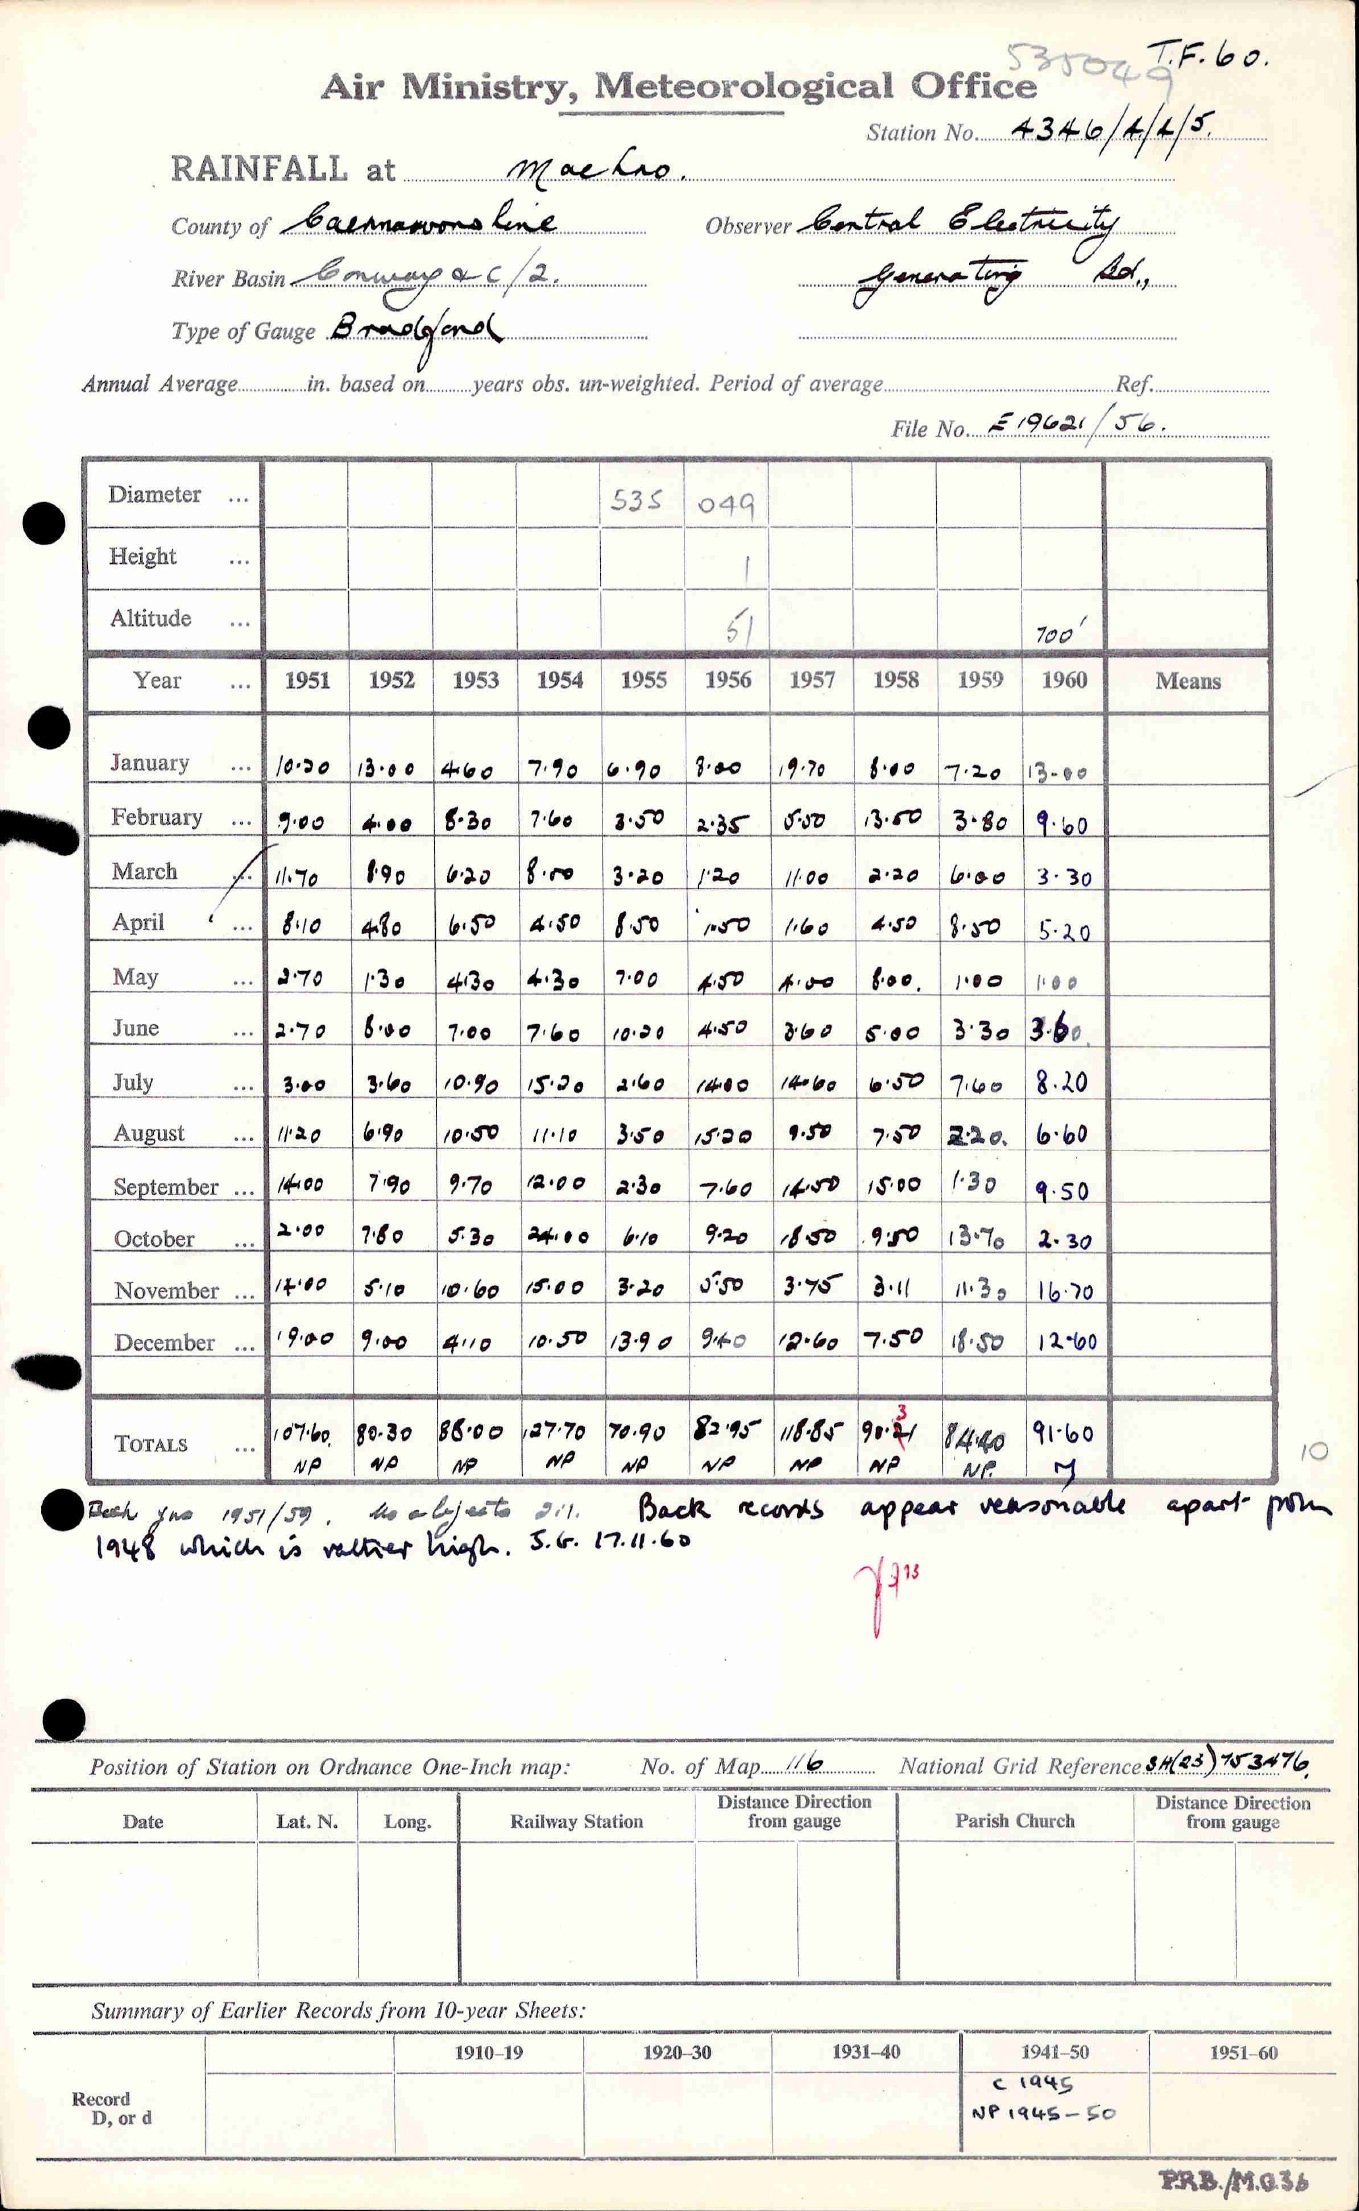 535049 T.F.60.
Air Ministry, Meteorological Office
Station No. 4346/A/A/5.
RAINFALL at Machno.
County of Caernarvonshire Observer Central Electricity
River Basin Conway & C/2. Generating Bd.,
Type of Gauge Bradford
Annual Average in. based on years obs. un-weighted. Period of average Ref.
File No. E19621/56.
Diameter ... 535 049
Height ... 1
Altitude ... 51 700'
Year ... 1951 1952 1953 1954 1955 1956 1957 1958 1959 1960 Means
January ... 10.20 13.00 4.60 7.90 6.90 8.00 19.70 8.00 7.20 13.00
February ... 9.00 4.00 8.30 7.60 3.50 2.35 5.50 13.50 3.80 9.60
March ... 11.70 8.90 6.20 8.00 3.20 1.20 11.00 2.20 6.00 3.30
April ... 8.10 4.80 6.50 4.50 8.50 1.50 1.60 4.50 8.50 5.20
May ... 2.70 1.30 4.30 4.30 7.00 4.50 4.00 8.00. 1.00 1.00
June ... 2.70 8.00 7.00 7.60 10.20 4.50 3.60 5.00 3.30 3.60.
July ... 3.00 3.60 10.90 15.20 2.60 14.00 14.60 6.50 7.60 8.20
August ... 11.20 6.90 10.50 11.10 3.50 15.20 9.50 7.50 2.20. 6.60
September ... 14.00 7.90 9.70 12.00 2.30 7.60 14.50 15.00 1.30 9.50
October ... 2.00 7.80 5.30 24.00 6.10 9.20 18.50 9.50 13.70 2.30
November ... 14.00 5.10 10.60 15.00 3.20 5.50 3.75 3.11 11.30 16.70
December ... 19.00 9.00 4.10 10.50 13.90 9.40 12.60 7.50 18.50 12.60
3
TOTALS ... 107.60. 80.30 88.00 127.70 70.90 82.95 118.85 90.21 84.40 91.60 10
NP NP NP NP NP NP NP NP NP.
1951/59. Back records appear reasonable apart from
1948 which is rather high. S.G. 17.11.60
Position of Station on Ordnance One-Inch map: No. of Map 116 National Grid Reference SH(23)753476.
Date Lat. N. Long. Railway Station Distance Direction from gauge Parish Church Distance Direction from gauge
Summary of Earlier Records from 10-year Sheets:
1910–19 1920–30 1931–40 1941–50 1951–60
Record C 1945
D, or d NP 1945-50
P.R.B./M.O.36